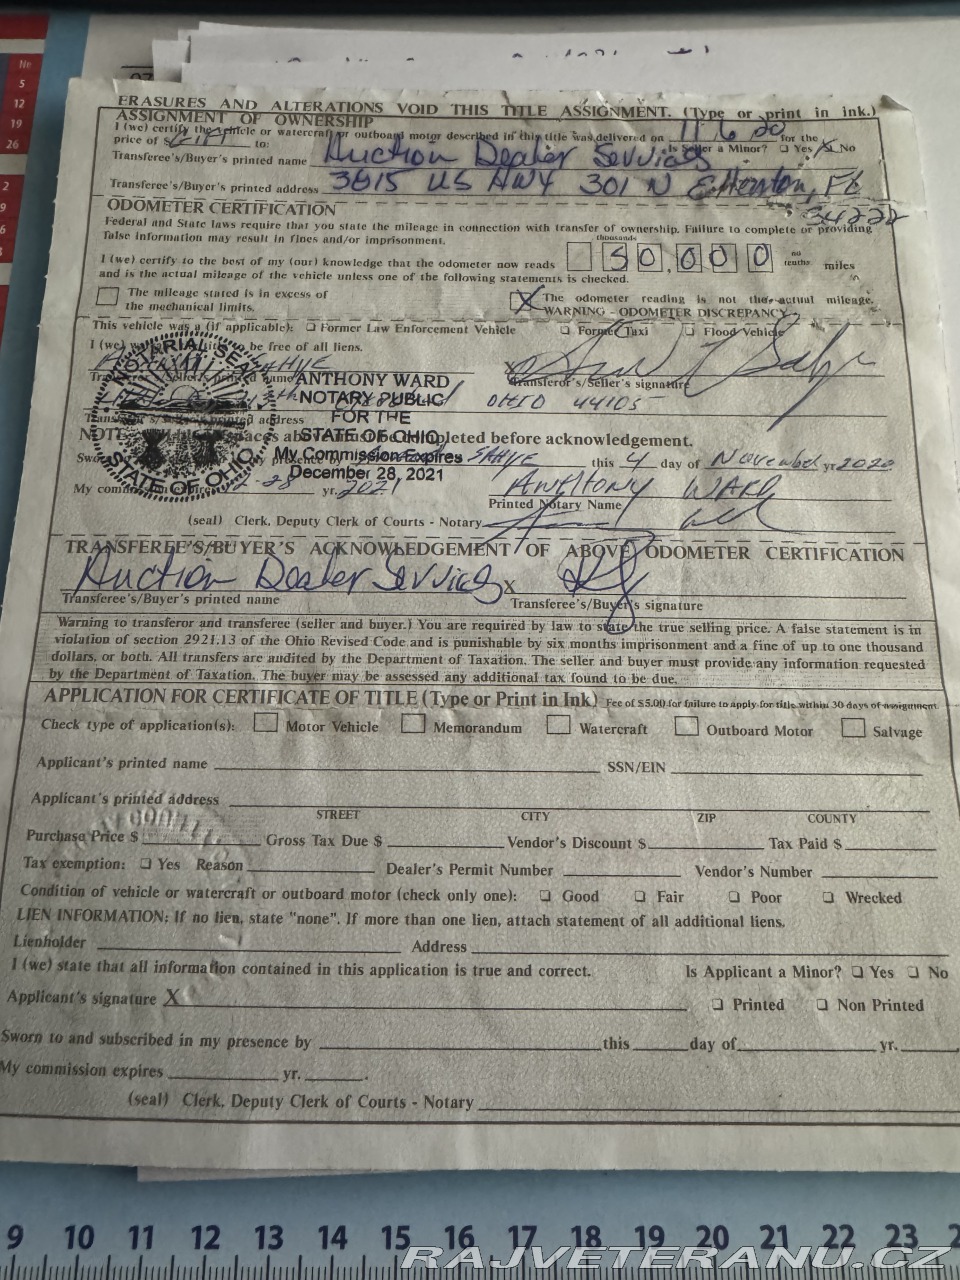 ERASURES AND ALTERATIONS VOID THIS TITLE ASSIGNMENT. (Type or print in ink.)
ASSIGNMENT OF OWNERSHIP
I (we) certify the vehicle or watercraft or outboard motor described in this title was delivered on 11 6 20 for the
price of $ GIFT to: Is Seller a Minor? Yes X No
Transferee's/Buyer's printed name Auction Dealer Services
Transferee's/Buyer's printed address 3615 US HWY 301 N Ellenton, FL
34222
ODOMETER CERTIFICATION
Federal and State laws require that you state the mileage in connection with transfer of ownership. Failure to complete or providing
false information may result in fines and/or imprisonment.
thousands
I (we) certify to the best of my (our) knowledge that the odometer now reads 50,000 no tenths miles
and is the actual mileage of the vehicle unless one of the following statements is checked.
The mileage stated is in excess of
the mechanical limits.
X The odometer reading is not the actual mileage.
WARNING - ODOMETER DISCREPANCY
This vehicle was a (if applicable): Former Law Enforcement Vehicle Former Taxi Flood Vehicle
I (we) to be free of all liens.
X
Transferor's/Seller's printed name Transferor's/Seller's signature
OHIO 44105
address
NOTARIAL SEAL
STATE OF OHIO
ANTHONY WARD
NOTARY PUBLIC
FOR THE
STATE OF OHIO
My Commission Expires
December 28, 2021
NOTE: spaces above must be completed before acknowledgement.
Sworn presence by SAHYE this 4 day of November yr. 2020
My commission expires 12-28 yr. 2021 ANTHONY WARD
Printed Notary Name
(seal) Clerk, Deputy Clerk of Courts - Notary
TRANSFEREE'S/BUYER'S ACKNOWLEDGEMENT OF ABOVE ODOMETER CERTIFICATION
Auction Dealer Services X
Transferee's/Buyer's printed name Transferee's/Buyer's signature
Warning to transferor and transferee (seller and buyer.) You are required by law to state the true selling price. A false statement is in
violation of section 2921.13 of the Ohio Revised Code and is punishable by six months imprisonment and a fine of up to one thousand
dollars, or both. All transfers are audited by the Department of Taxation. The seller and buyer must provide any information requested
by the Department of Taxation. The buyer may be assessed any additional tax found to be due.
APPLICATION FOR CERTIFICATE OF TITLE (Type or Print in Ink) Fee of $5.00 for failure to apply for title within 30 days of assignment.
Check type of application(s): Motor Vehicle Memorandum Watercraft Outboard Motor Salvage
Applicant's printed name SSN/EIN
Applicant's printed address
STREET CITY ZIP COUNTY
Purchase Price $ Gross Tax Due $ Vendor's Discount $ Tax Paid $
Tax exemption: Yes Reason Dealer's Permit Number Vendor's Number
Condition of vehicle or watercraft or outboard motor (check only one): Good Fair Poor Wrecked
LIEN INFORMATION: If no lien, state "none". If more than one lien, attach statement of all additional liens.
Lienholder Address
I (we) state that all information contained in this application is true and correct. Is Applicant a Minor? Yes No
Applicant's signature X Printed Non Printed
Sworn to and subscribed in my presence by this day of yr.
My commission expires yr. .
(seal) Clerk, Deputy Clerk of Courts - Notary
9 10 11 12 13 14 15 16 17 18 19 20 21 22 23
RAJVETERANU.CZ